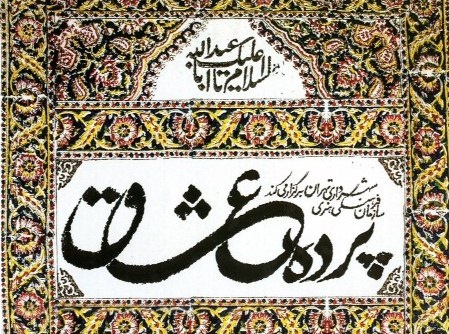 السلام علیک یا اباعبدالله
سازمان فرهنگی هنری شهرداری تهران برگزار می کند
پرده های عشق